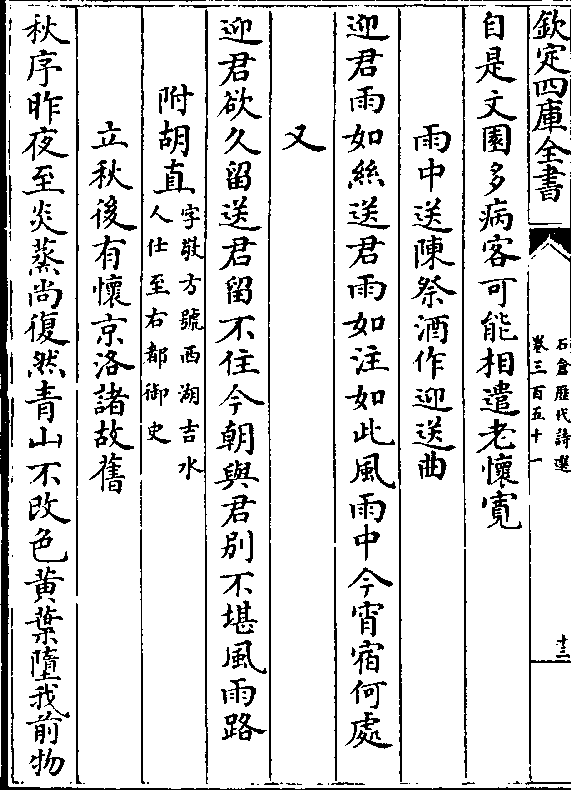 欽定四庫全書
石倉歷代詩選
卷三百五十一
十三
自是文園多病客可能相遣老懷寛
雨中送陳祭酒作迎送曲
迎君雨如絲送君雨如注如此風雨中今宵宿何處
又
迎君欲久留送君留不住今朝與君别不堪風雨路
附胡直字敬方號西湖吉水
人仕至右都御史
立秋後有懷京洛諸故舊
秋序昨夜至炎蒸尚復然青山不改色黄葉墮我前物